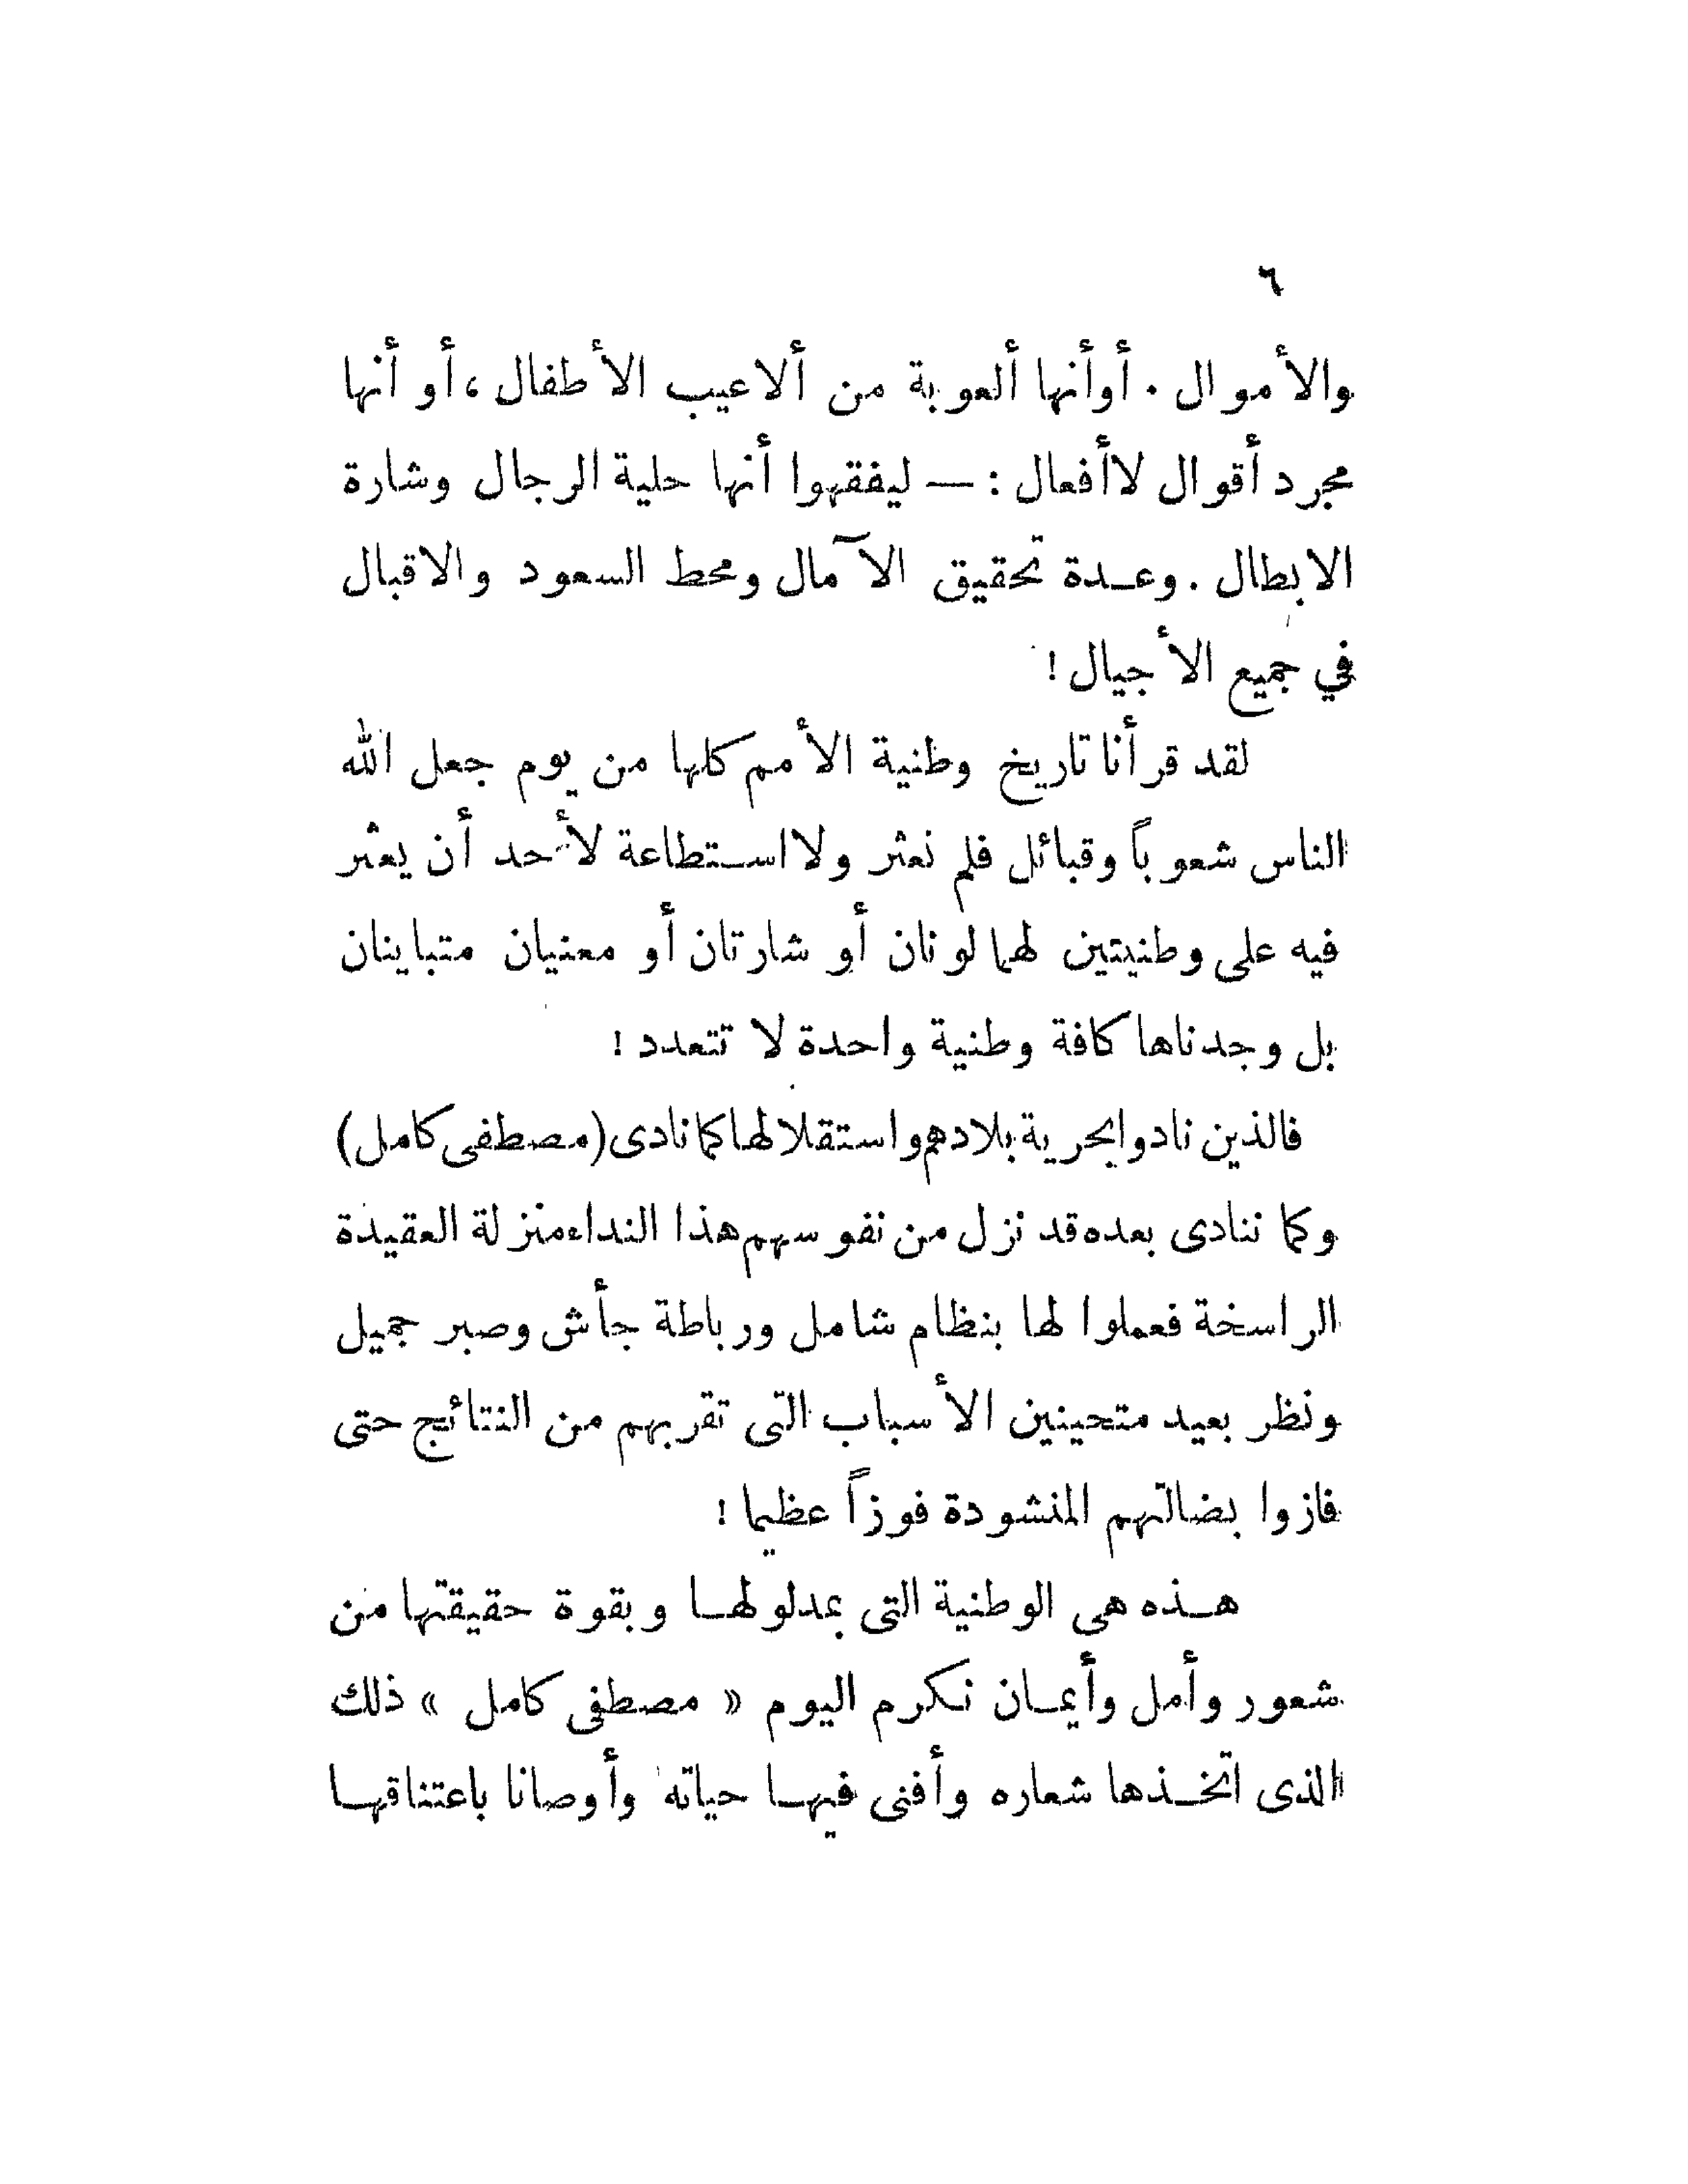 ٦
والأموال . أوأنها ألعوبة من ألاعيب الأطفال ، أو أنها
مجرد أقوال لاأفعال : — ليفقهوا أنها حلية الرجال وشارة
الابطال . وعدة تحقيق الآمال ومحط السعود والاقبال
في جميع الأجيال !
لقد قرأنا تاريخ وطنية الأمم كلها من يوم جعل الله
الناس شعوباً وقبائل فلم نعثر ولا استطاعة لأحد أن يعثر
فيه على وطنيتين لهما لونان أو شارتان أو معنيان متباينان
بل وجدناها كافة وطنية واحدة لا تتعدد !
فالذين نادوا بحرية بلادهم واستقلالها كما نادى (مصطفى كامل)
وكما ننادى بعده قد نزل من نفوسهم هذا النداء منزلة العقيدة
الراسخة فعملوا لها بنظام شامل ورباطة جأش وصبر جميل
ونظر بعيد متحينين الأسباب التى تقربهم من النتائج حتى
فازوا بضالتهم المنشودة فوزاً عظيما !
هذه هى الوطنية التى بمدلولها وبقوة حقيقتها من
شعور وأمل وأيمان نكرم اليوم « مصطفى كامل » ذلك
الذى اتخذها شعاره وأفنى فيها حياته وأوصانا باعتناقها